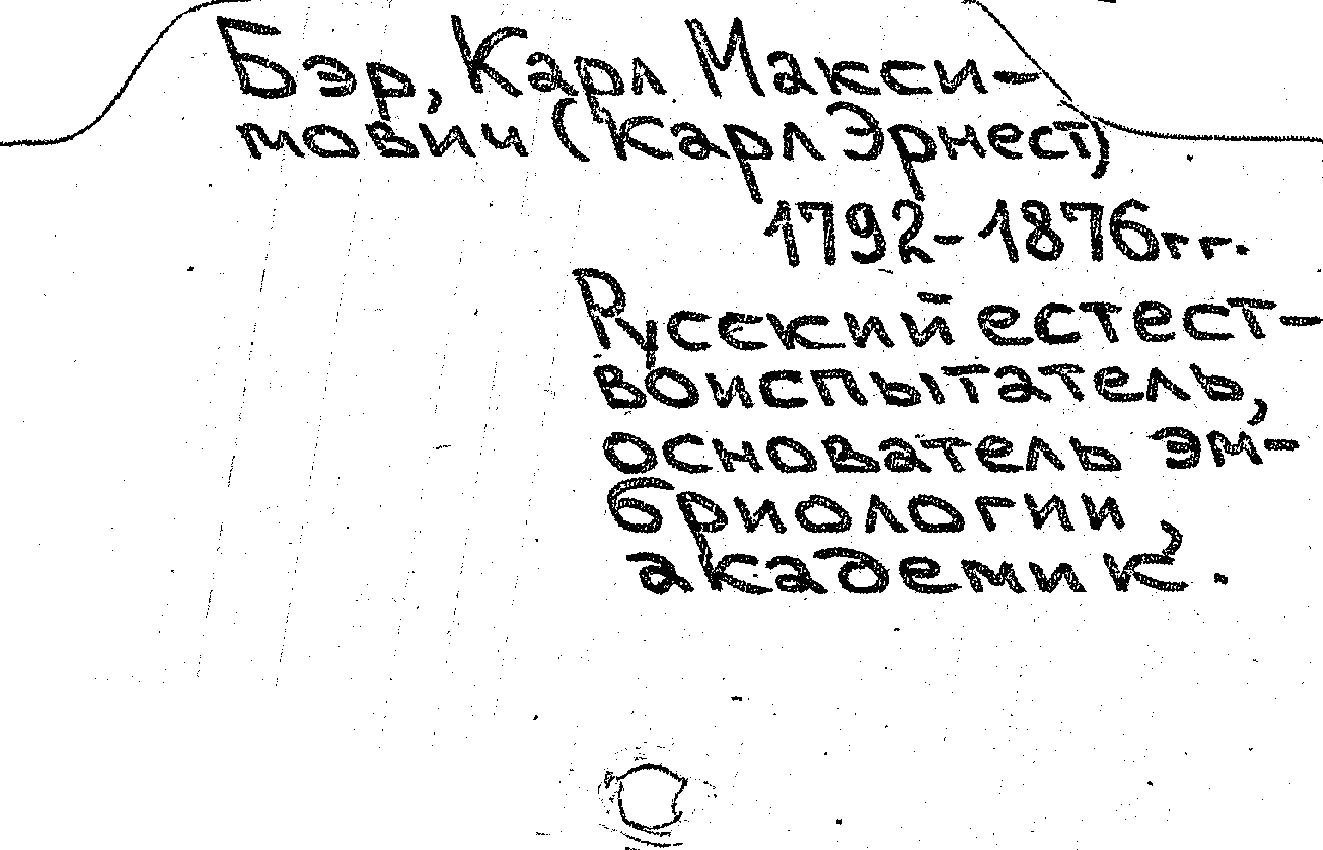 Бэр, Карл Макси-
мович (Карл Эрнест)
1792-1876гг.
Русский естест-
воиспытатель,
основатель эм-
бриологии,
академик.